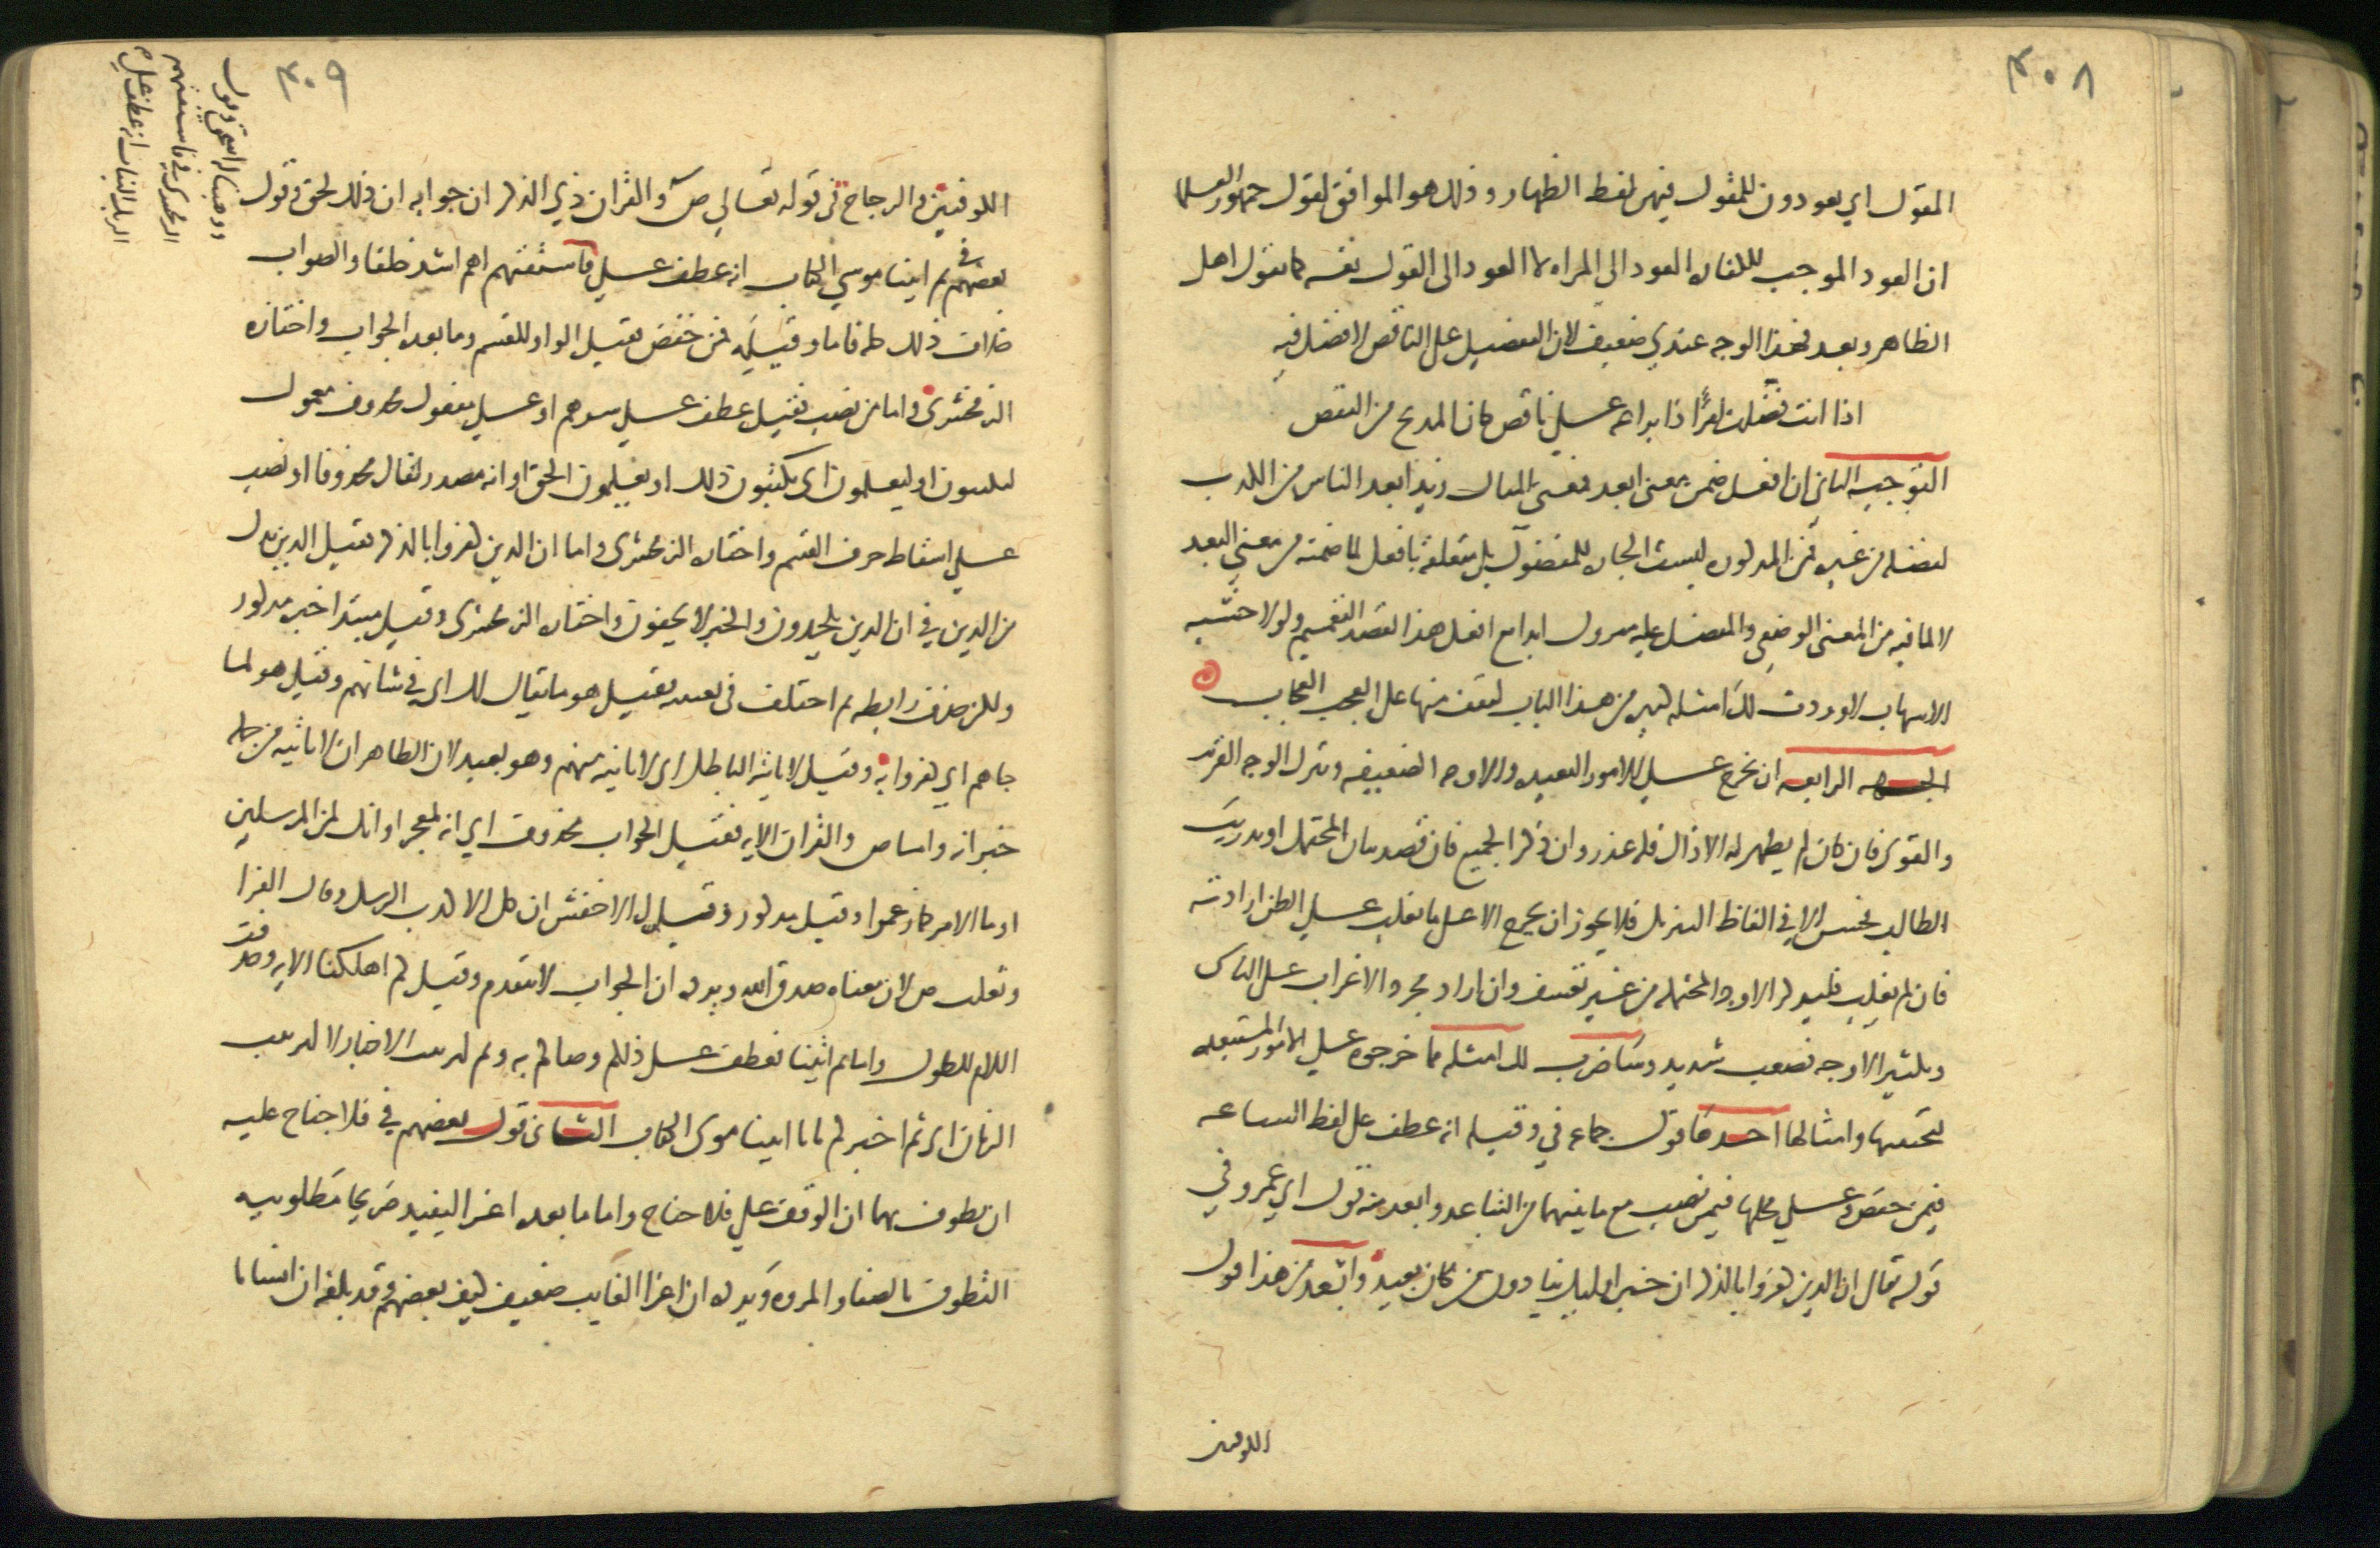 ٤٠٨
المقول اي يعودون للمقول فيهن لفظ الظهار وذلك هو الموافق لقول جمهور العلما
ان العود الموجب للكفاره العود الى المراه لا العود الى القول نفسه كما يقول اهل
الظاهر وبعد فهذا الوجه عندي ضعيف لان التفضيل على الناقص لا فضل فيه
اذا انت فضلت امرًا ذا براعه على ناقص كان المديح من النقص
التوجيه الثاني ان افعل ضمن معنى ابعد فمعنى المثال زيد ابعد الناس من الكذب
لفضله من غيره فمن المذكوره ليست الجاره للمفضول بل متعلقة بافعل لما ضمنه من معنى البعد
لا لما فيه من المعنى الوضعي والمفضل عليه متروك ابدا مع افعل هذا لقصد التعميم ولولا خشيه
الاسهاب لاوردت لك امثله كثيره من هذا الباب لتقف منها على العجب العجاب
الجهه الرابعه ان يخرج على الامور البعيده والاوجه الضعيفه ويترك الوجه القريب
والقوى فان كان لم يظهر له الا ذاك فله عذر وان ذكر الجميع فان قصد بيان المحتمل او تدريب
الطالب فحسن الا في الفاظ التنزيل فلا يجوز ان يخرج الا على ما يغلب على الظن ارادته
فان لم يغلب فليذكر الاوجه المحتمله من غير تعسف وان اراد مجرد الاغراب على الناس
وتكثير الاوجه فصعب شديد وساضرب لك امثله مما خرجوه على الامور المستبعده
لتجتنبها وامثالها احدها قول جماعه في وقيله انه عطف على لفظ الساعه
فيمن خفض وعلى محلها فيمن نصب مع ما بينهما من التباعد وابعد منه قول ابي عمرو في
قوله تعالى ان الذين كفروا بالذكر ان خبره اوليك ينادون من مكان بعيد وابعد من هذا قول
الكوفيين
٤٠٩
الكوفيين والزجاج في قوله تعالى ص والقران ذي الذكر ان جوابه ان ذلك لحق وقول
بعضهم في ثم اتينا موسى الكتاب انه عطف على
ووهبنا له اسحق وقول
الزمخشري في فاستفتهم
الربك البنات انه عطف على
فاستفتهم اهم اشد خلقا والصواب
خلاف ذلك كله فاما وقيله فمن خفض فقيل الواو للقسم وما بعده الجواب واختاره
الزمخشرى واما من نصب فقيل عطف على سرهم او على مفعول محذوف معمول
ليكتبون او ليعلمون اى يكتبون ذلك او يعلمون الحق او انه مصدر لقال محذوفا او نصب
على اسقاط حرف القسم واختاره الزمخشرى واما ان الذين كفروا بالذكر فقيل الذين بدل
من الذين في ان الذين يلحدون والخبر لا يخفون واختاره الزمخشرى وقيل مبتدا خبره مذكور
ولكن حذف رابطه ثم اختلف في تعيينه فقيل هو ما يقال لك اي في شانهم وقيل هو لما
جاهم اي كفروا به وقيل لا ياتيه الباطل اى لا ياتيه منهم وهو بعيد لان الظاهر ان لا ياتيه من جمله
خبر انه واما ص والقران الايه فقيل الجواب محذوف اي انه لمعجز او انك لمن المرسلين
او ما الامر كما زعموا وقيل مذكور فقيل الاخفش ان كل الا كذب الرسل وقال الفرا
وثعلب ص لان معناه صدق الله ويرده ان الجواب لا يتقدم وقيل كم اهلكنا الايه وحذفت
اللام للطول واما ثم اتينا فعطف على ذلكم وصاكم به وثم لترتيب الاخبار لا لترتيب
الزمان اى ثم اخبركم بانا اتينا موسى الكتاب الثاني قول بعضهم في فلا جناح عليه
ان يطوف بهما ان الوقف على فلا جناح واما ما بعده اغرا ليفيد صريحا مطلوبيه
التطوف بالصفا والمروه ويرده ان اغرا الغايب ضعيف كيف بعضهم وقد بلغه ان انسانا